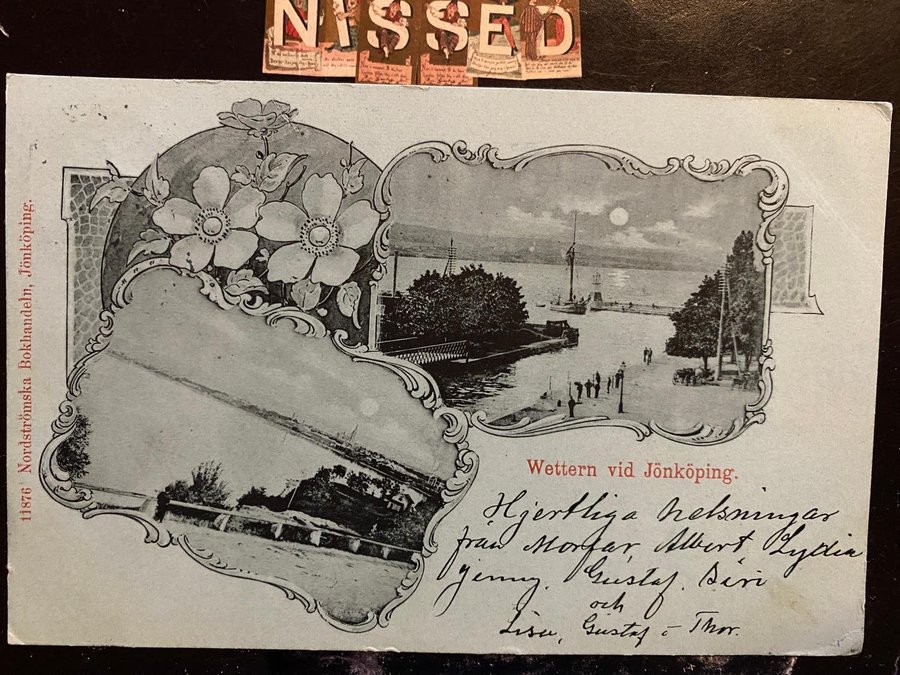 NISSED
11876 Nordströmska Bokhandeln, Jönköping.
Wettern vid Jönköping.
Hjertliga helsningar
från Morfar, Albert, Lydia
Jenny, Gustaf, Siri
och
Lisa, Gustaf o Thor.